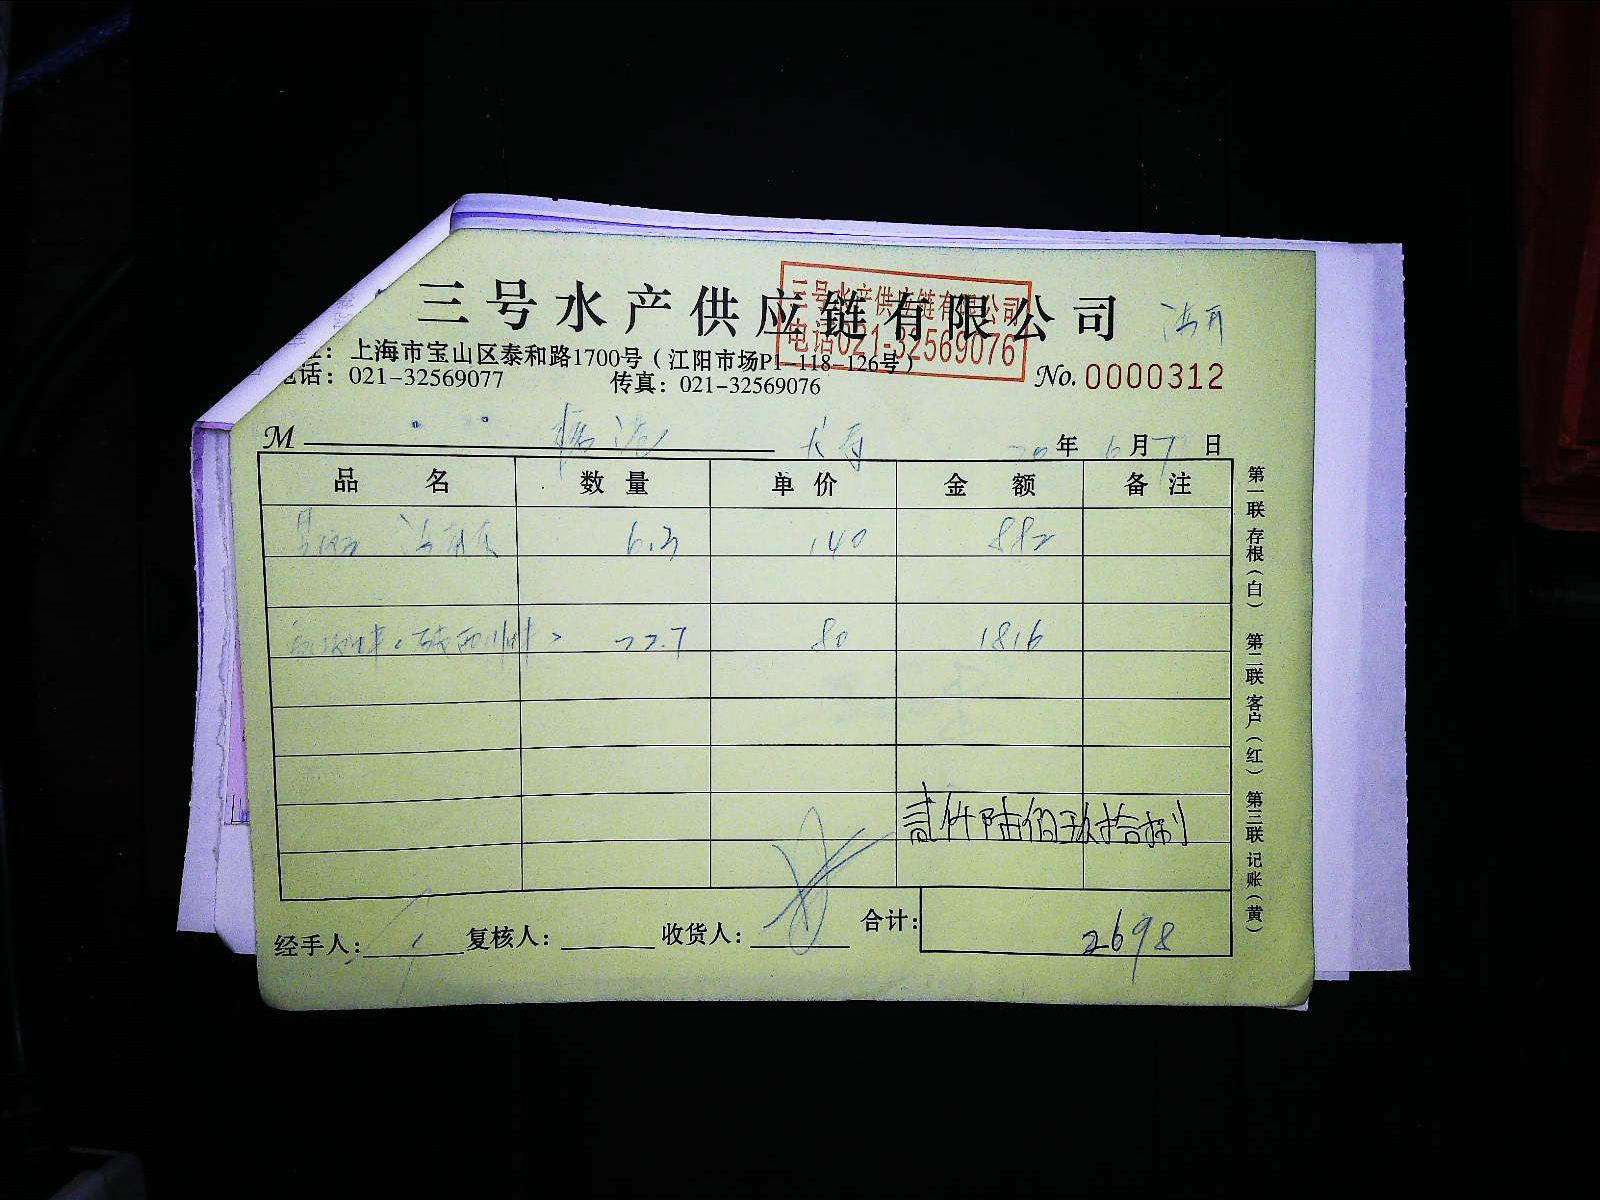 三号水产供应链有限公司
三号水产供应链有限公司
电话021-32569076
址：上海市宝山区泰和路1700号（江阳市场P1-118-126号）
电话：021-32569077 传真：021-32569076
No. 0000312
M
20年6月7日
品名 数量 单价 金额 备注
6.3 140 882
22.7 80 1816
贰仟陆佰玖拾捌
经手人： 复核人： 收货人： 合计： 2698
第一联 存根（白） 第二联 客户（红） 第三联 记账（黄）